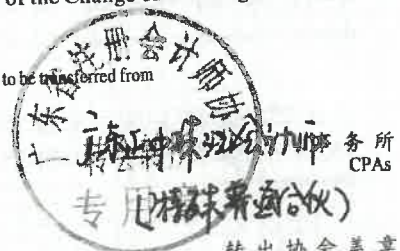 of the Change
to be transferred from
广东省注册会计师协
广东正中珠江会计师事务所
CPAs
专用
(特殊普通合伙)
转出协会盖章